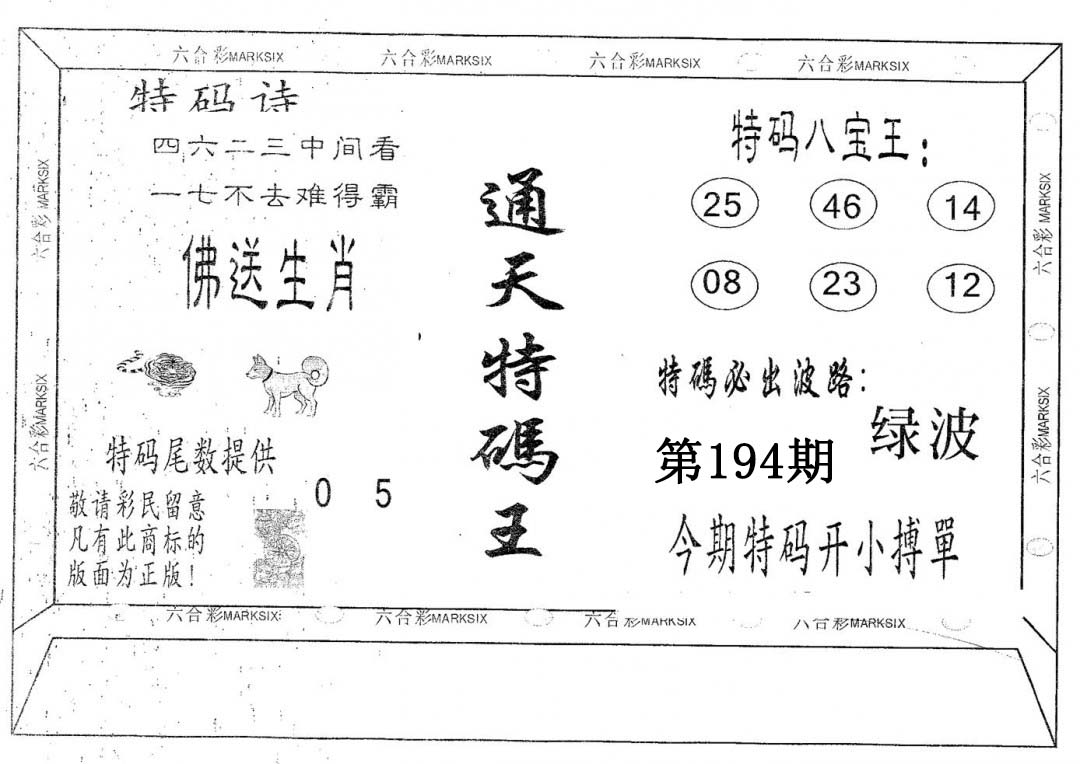 六合彩MARKSIX 六合彩MARKSIX 六合彩MARKSIX 六合彩MARKSIX
特码诗
四六二三中间看
一七不去难得霸
佛送生肖
特码尾数提供
0 5
敬请彩民留意
凡有此商标的
版面为正版！
通天特碼王
特码八宝王：
25 46 14
08 23 12
特碼必出波路：
绿波
第194期
今期特码开小搏單
六合彩MARKSIX
六合彩MARKSIX
六合彩MARKSIX
六合彩MARKSIX
六合彩MARKSIX 六合彩MARKSIX 六合彩MARKSIX 六合彩MARKSIX